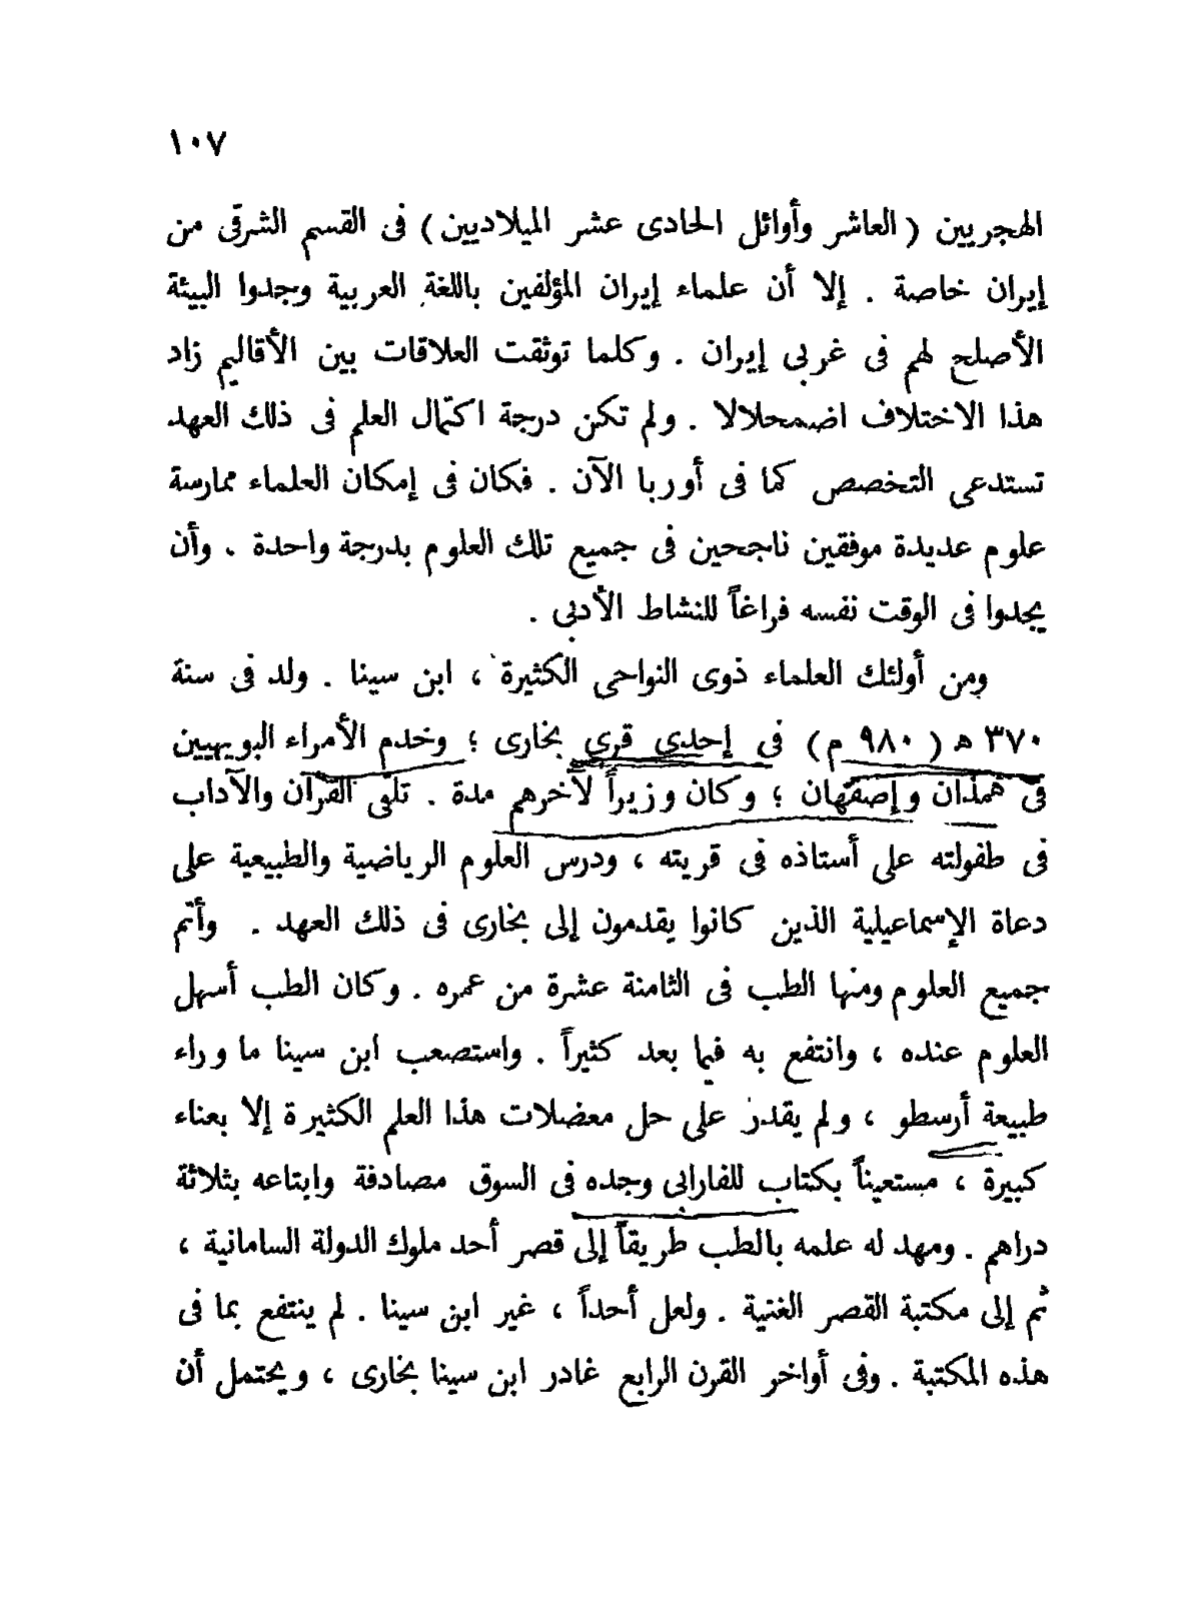 ١٠٧
الهجريين ( العاشر وأوائل الحادى عشر الميلاديين ) فى القسم الشرقى من
إيران خاصة . إلا أن علماء إيران المؤلفين باللغة العربية وجدوا البيئة
الأصلح لهم فى غربى إيران . وكلما توثقت العلاقات بين الأقاليم زاد
هذا الاختلاف اضمحلالا . ولم تكن درجة اكتمال العلم فى ذلك العهد
تستدعى التخصص كما فى أوربا الآن . فكان فى إمكان العلماء ممارسة
علوم عديدة موفقين ناجحين فى جميع تلك العلوم بدرجة واحدة . وأن
يجدوا فى الوقت نفسه فراغاً للنشاط الأدبى .
ومن أولئك العلماء ذوى النواحى الكثيرة ، ابن سينا . ولد فى سنة
٣٧٠ ه ( ٩٨٠ م ) فى إحدى قرى بخارى ؛ وخدم الأمراء البويهيين
فى همذان وإصفهان ؛ وكان وزيراً لآخرهم مدة . تلقى القرآن والآداب
فى طفولته على أستاذه فى قريته ، ودرس العلوم الرياضية والطبيعية على
دعاة الإسماعيلية الذين كانوا يقدمون إلى بخارى فى ذلك العهد . وأتم
جميع العلوم ومنها الطب فى الثامنة عشرة من عمره . وكان الطب أسهل
العلوم عنده ، وانتفع به فيما بعد كثيراً . واستصعب ابن سينا ما وراء
طبيعة أرسطو ، ولم يقدر على حل معضلات هذا العلم الكثيرة إلا بعناء
كبيرة ، مستعيناً بكتاب للفارابى وجده فى السوق مصادفة وابتاعه بثلاثة
دراهم . ومهد له علمه بالطب طريقاً إلى قصر أحد ملوك الدولة السامانية ،
ثم إلى مكتبة القصر الغنية . ولعل أحداً ، غير ابن سينا . لم ينتفع بما فى
هذه المكتبة . وفى أواخر القرن الرابع غادر ابن سينا بخارى ، ويحتمل أن